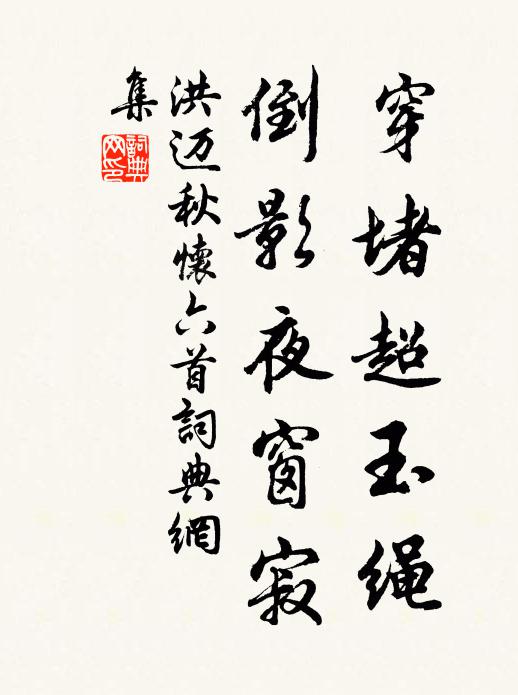 穿堵超玉绳
倒影夜窗寂
洪迈秋懷六首詞典網
集
詞典
网